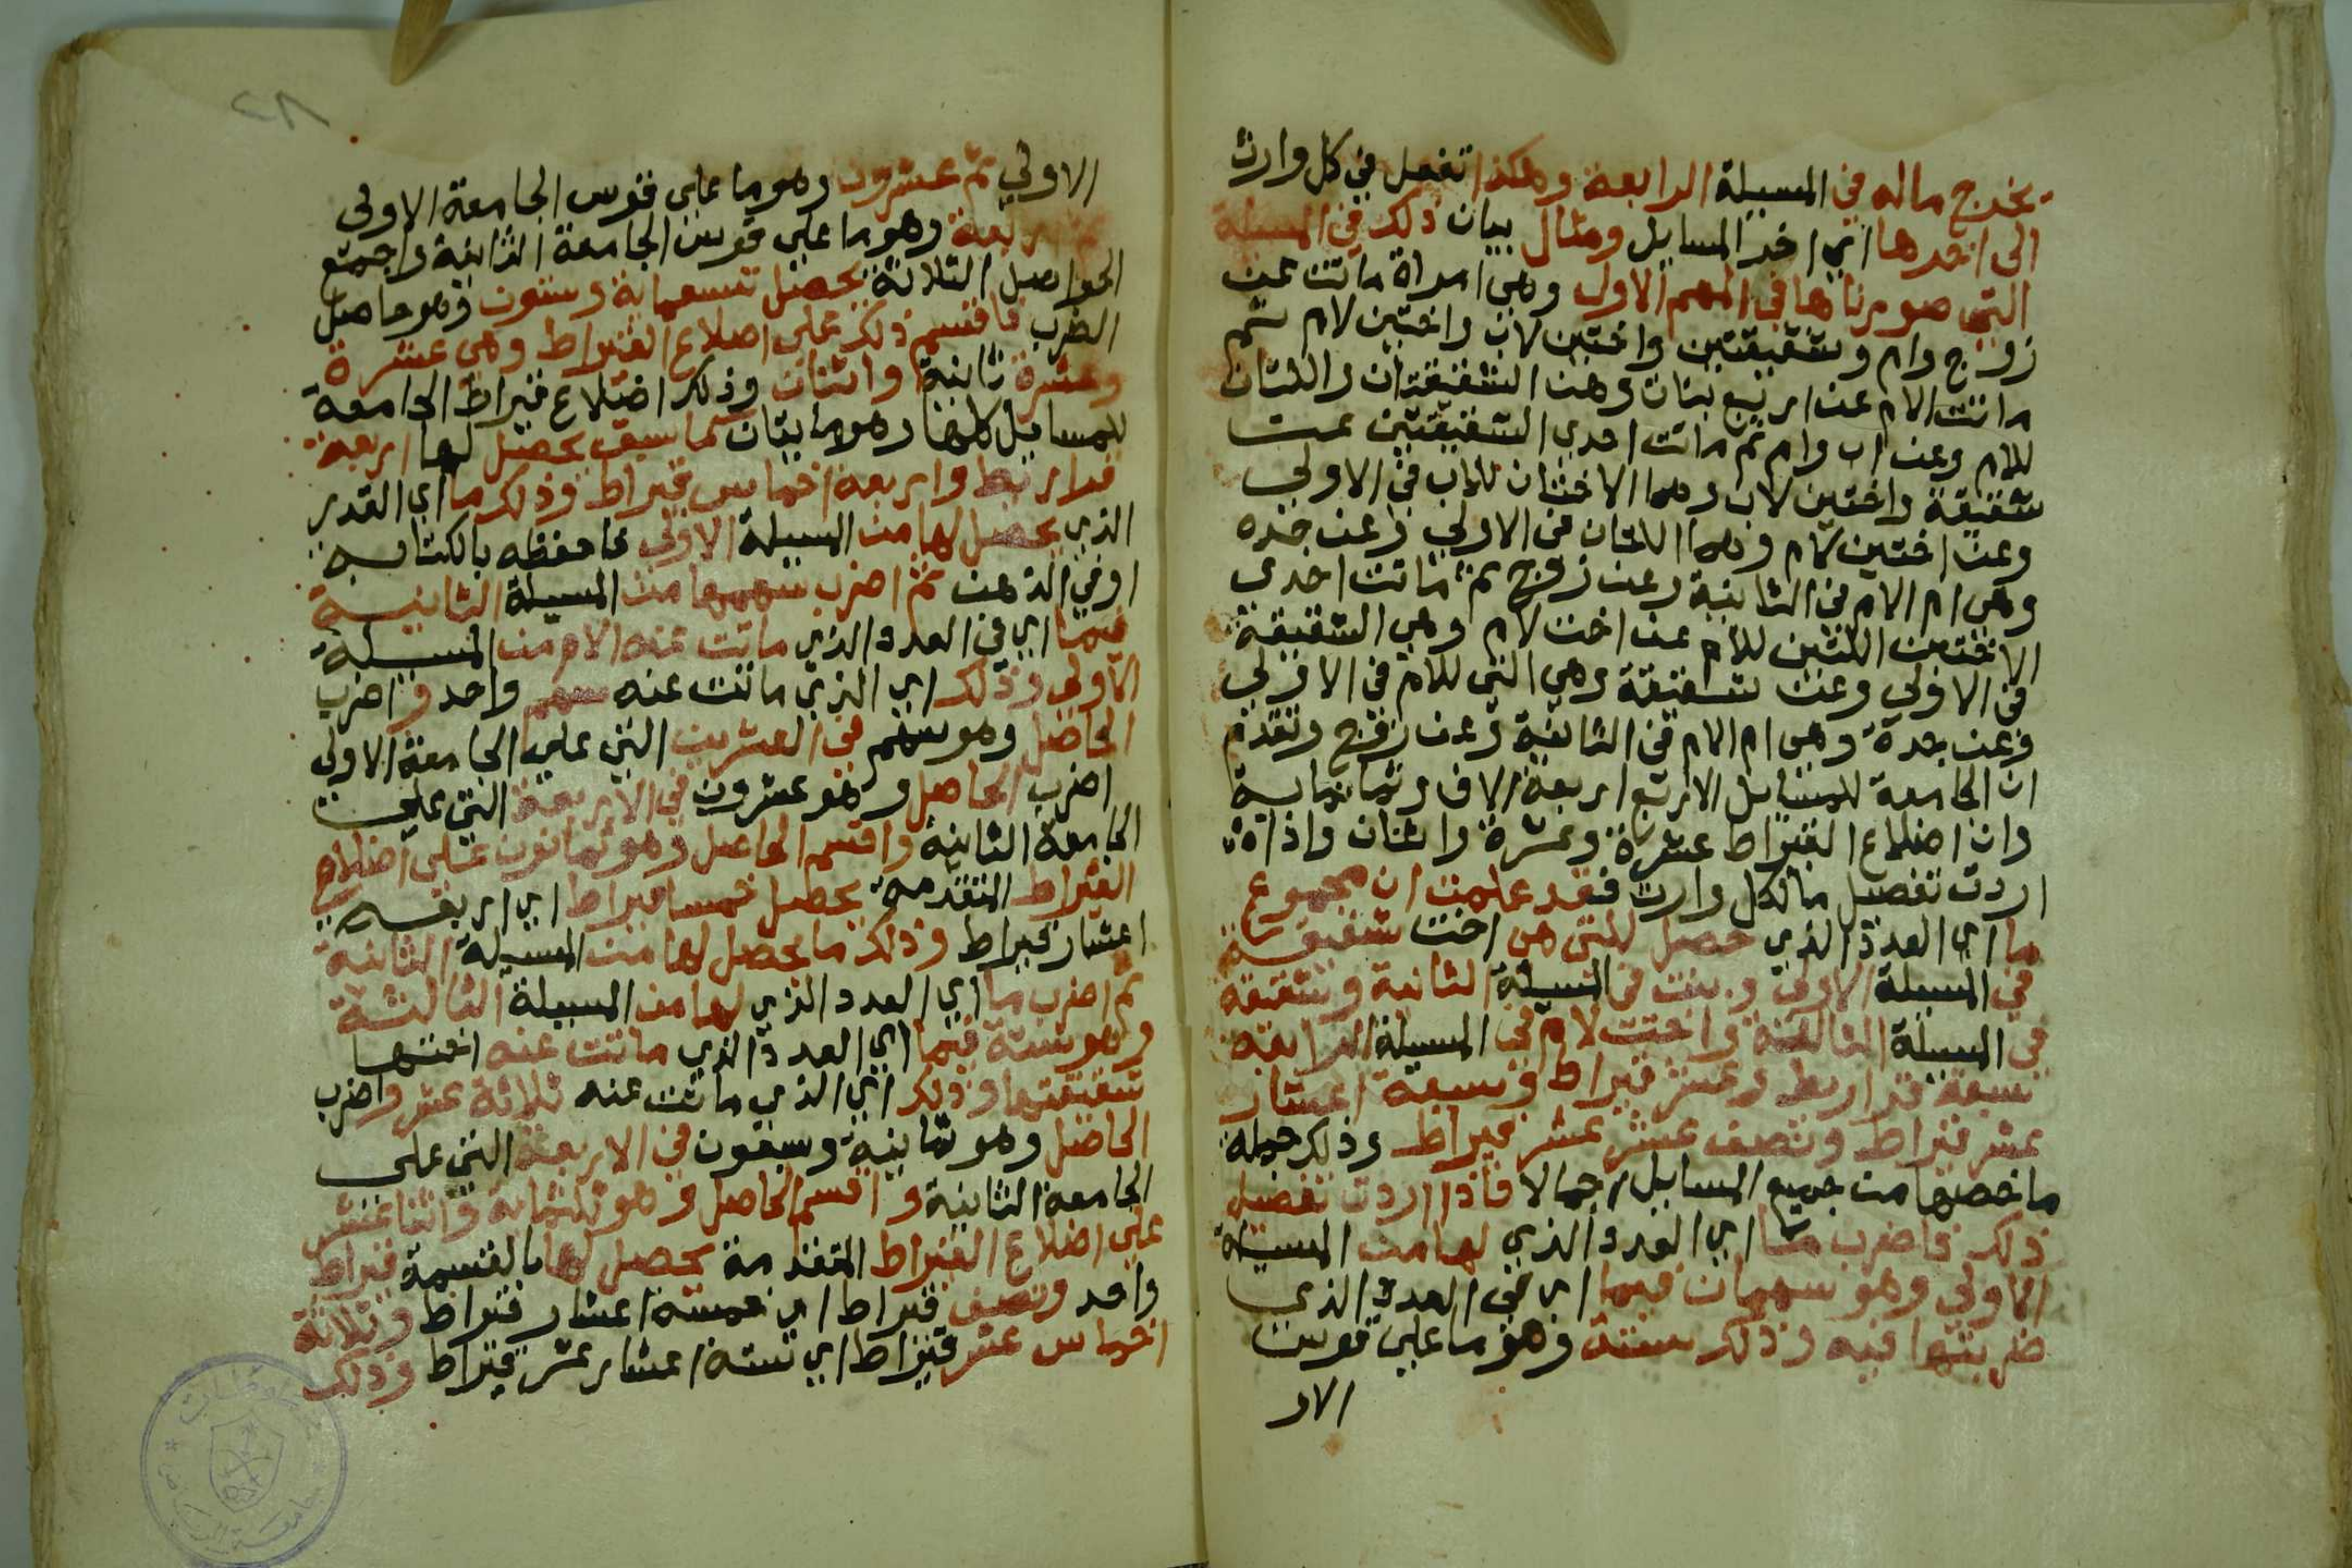 يخرج ماله في المسيلة الرابعة وهكذا تفعل في كل وارث
الى اخرها اي اخر المسايل ومثال بيان ذلك في المسيلة
التي صورناها في المهم الاول وهي امراة ماتت عن
زوج وام وشقيقتين واختين لاب واختين لام ثم
ماتت الام عن اربع بنات وهن الشقيقتان واللتان
للام وعن اب وام ثم ماتت احدي الشقيقتين عن
شقيقة واختين لاب وهما الاختان للاب في الاولي
وعن اختين لام وهما اللتان في الاولي وعن جده
وهي ام الام في الثانية وعن زوج ثم ماتت احدى
الاختين اللتين للام عن اخت لام وهي الشقيقة
في الاولي وعن شقيقة وهي التي للام في الاولي
وعن جدة وهي ام الام في الثانية وعن زوج وتقدم
ان الجامعة للمسايل الاربع اربعة الاف وثمانماية
وان اضلاع القيراط عشرة وعشرة واثنان واذا
اردت تفصيل ما لكل وارث فقد علمت ان مجموع
ما اي العدد الذي حصل للتي هي اخت شقيقة
في المسيلة الاولى وبنت في المسيلة الثانية وشقيقة
في المسيلة الثالثة واخت لام في المسيلة الرابعة
سبعة قراريط وعشر قيراط وسبعة اعشار
عشر قيراط ونصف عشر عشر قيراط وذلك جملة
ما خصها من جميع المسايل اجمالا فاذا اردت تفصيل
ذلك فاضرب ما اي العدد الذي لها من المسيلة
الاولي وهو سهمان فيما اي في العدد الذي
ضربتها فيه وذلك ستة وهو ما علي قوس
الاو
٨٢
الاولي ثم عشرون وهو ما علي قوس الجامعة الاولى
ثم اربعة وهو ما علي قوس الجامعة الثانية واجمع
الحواصل الثلاثة يحصل تسعماية وستون وهو حاصل
الضرب فاقسم ذلك على اضلاع القيراط وهي عشرة
وعشرة ثانية واثنان وذلك اضلاع قيراط الجامعة
للمسايل كلها وهو مايتان كما سبق يحصل لها اربعة
قراريط واربعة اخماس قيراط وذلك ما اي القدر
الذي يحصل لها من المسيلة الاولي فاحفظه بالكتابه
او في الذهن ثم اضرب سهمها من المسيلة الثانية
فيما اي في العدد الذي ماتت عنه الام من المسيلة
الاولى وذلك اي الذي ماتت عنه سهم واحد واضرب
الحاصل وهو سهم في العشرين التي علي الجامعة الاولي
اضرب الحاصل وهو عشرون في الاربعة التي علي
الجامعة الثانية واقسم الحاصل وهو ثمانون على اضلاع
القيراط المتقدمه يحصل خمسا قيراط اي اربعه
اعشار قيراط وذلك ما يحصل لها من المسيلة الثانية
ثم اضرب ما اي العدد الذي لها من المسيلة الثالثة
وهو ستة فيما اي العدد الذي ماتت عنه اختها
شقيقتها وذلك اي الذي ماتت عنه ثلاثة عشر واضرب
الحاصل وهو ثمانية وسبعون في الاربعة التي على
الجامعة الثانية واقسم الحاصل وهو ثلثماية واثنا عشر
علي اضلاع القيراط المتقدمة يحصل لها بالقسمة قيراط
واحد ونصف قيراط اي خمسة اعشار قيراط وثلاثة
اخماس عشر قيراط اي ستة اعشار عشر قيراط وذلك